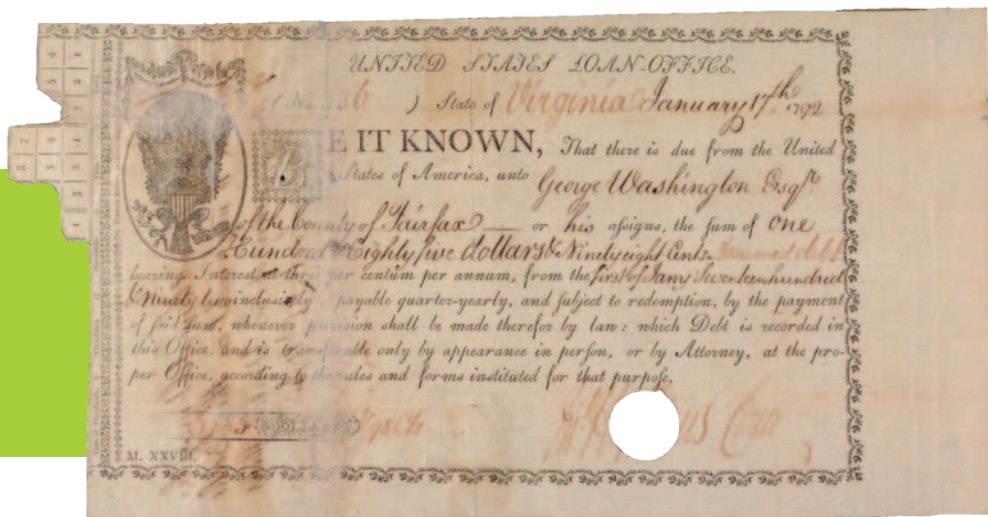 UNITED STATES LOAN-OFFICE.
(No. 136 ) State of Virginia January 17th 1792
BE IT KNOWN, That there is due from the United
States of America, unto George Washington Esqr.
of the County of Fairfax — or his aſsigns, the ſum of one
Hundred & Eighty five dollars & Ninety eight Cents aſsumed debt
bearing Intereſt at three per centum per annum, from the first of Jany Seventeen hundred
& Ninety two inclusively, payable quarter-yearly, and ſubject to redemption, by the payment
of ſaid ſum, whenever proviſion ſhall be made therefor by law: which Debt is recorded in
this Office, and is transferable only by appearance in perſon, or by Attorney, at the pro-
per Office, according to the rules and forms inſtituted for that purpoſe.
DOLLARS
M. XXVIII.